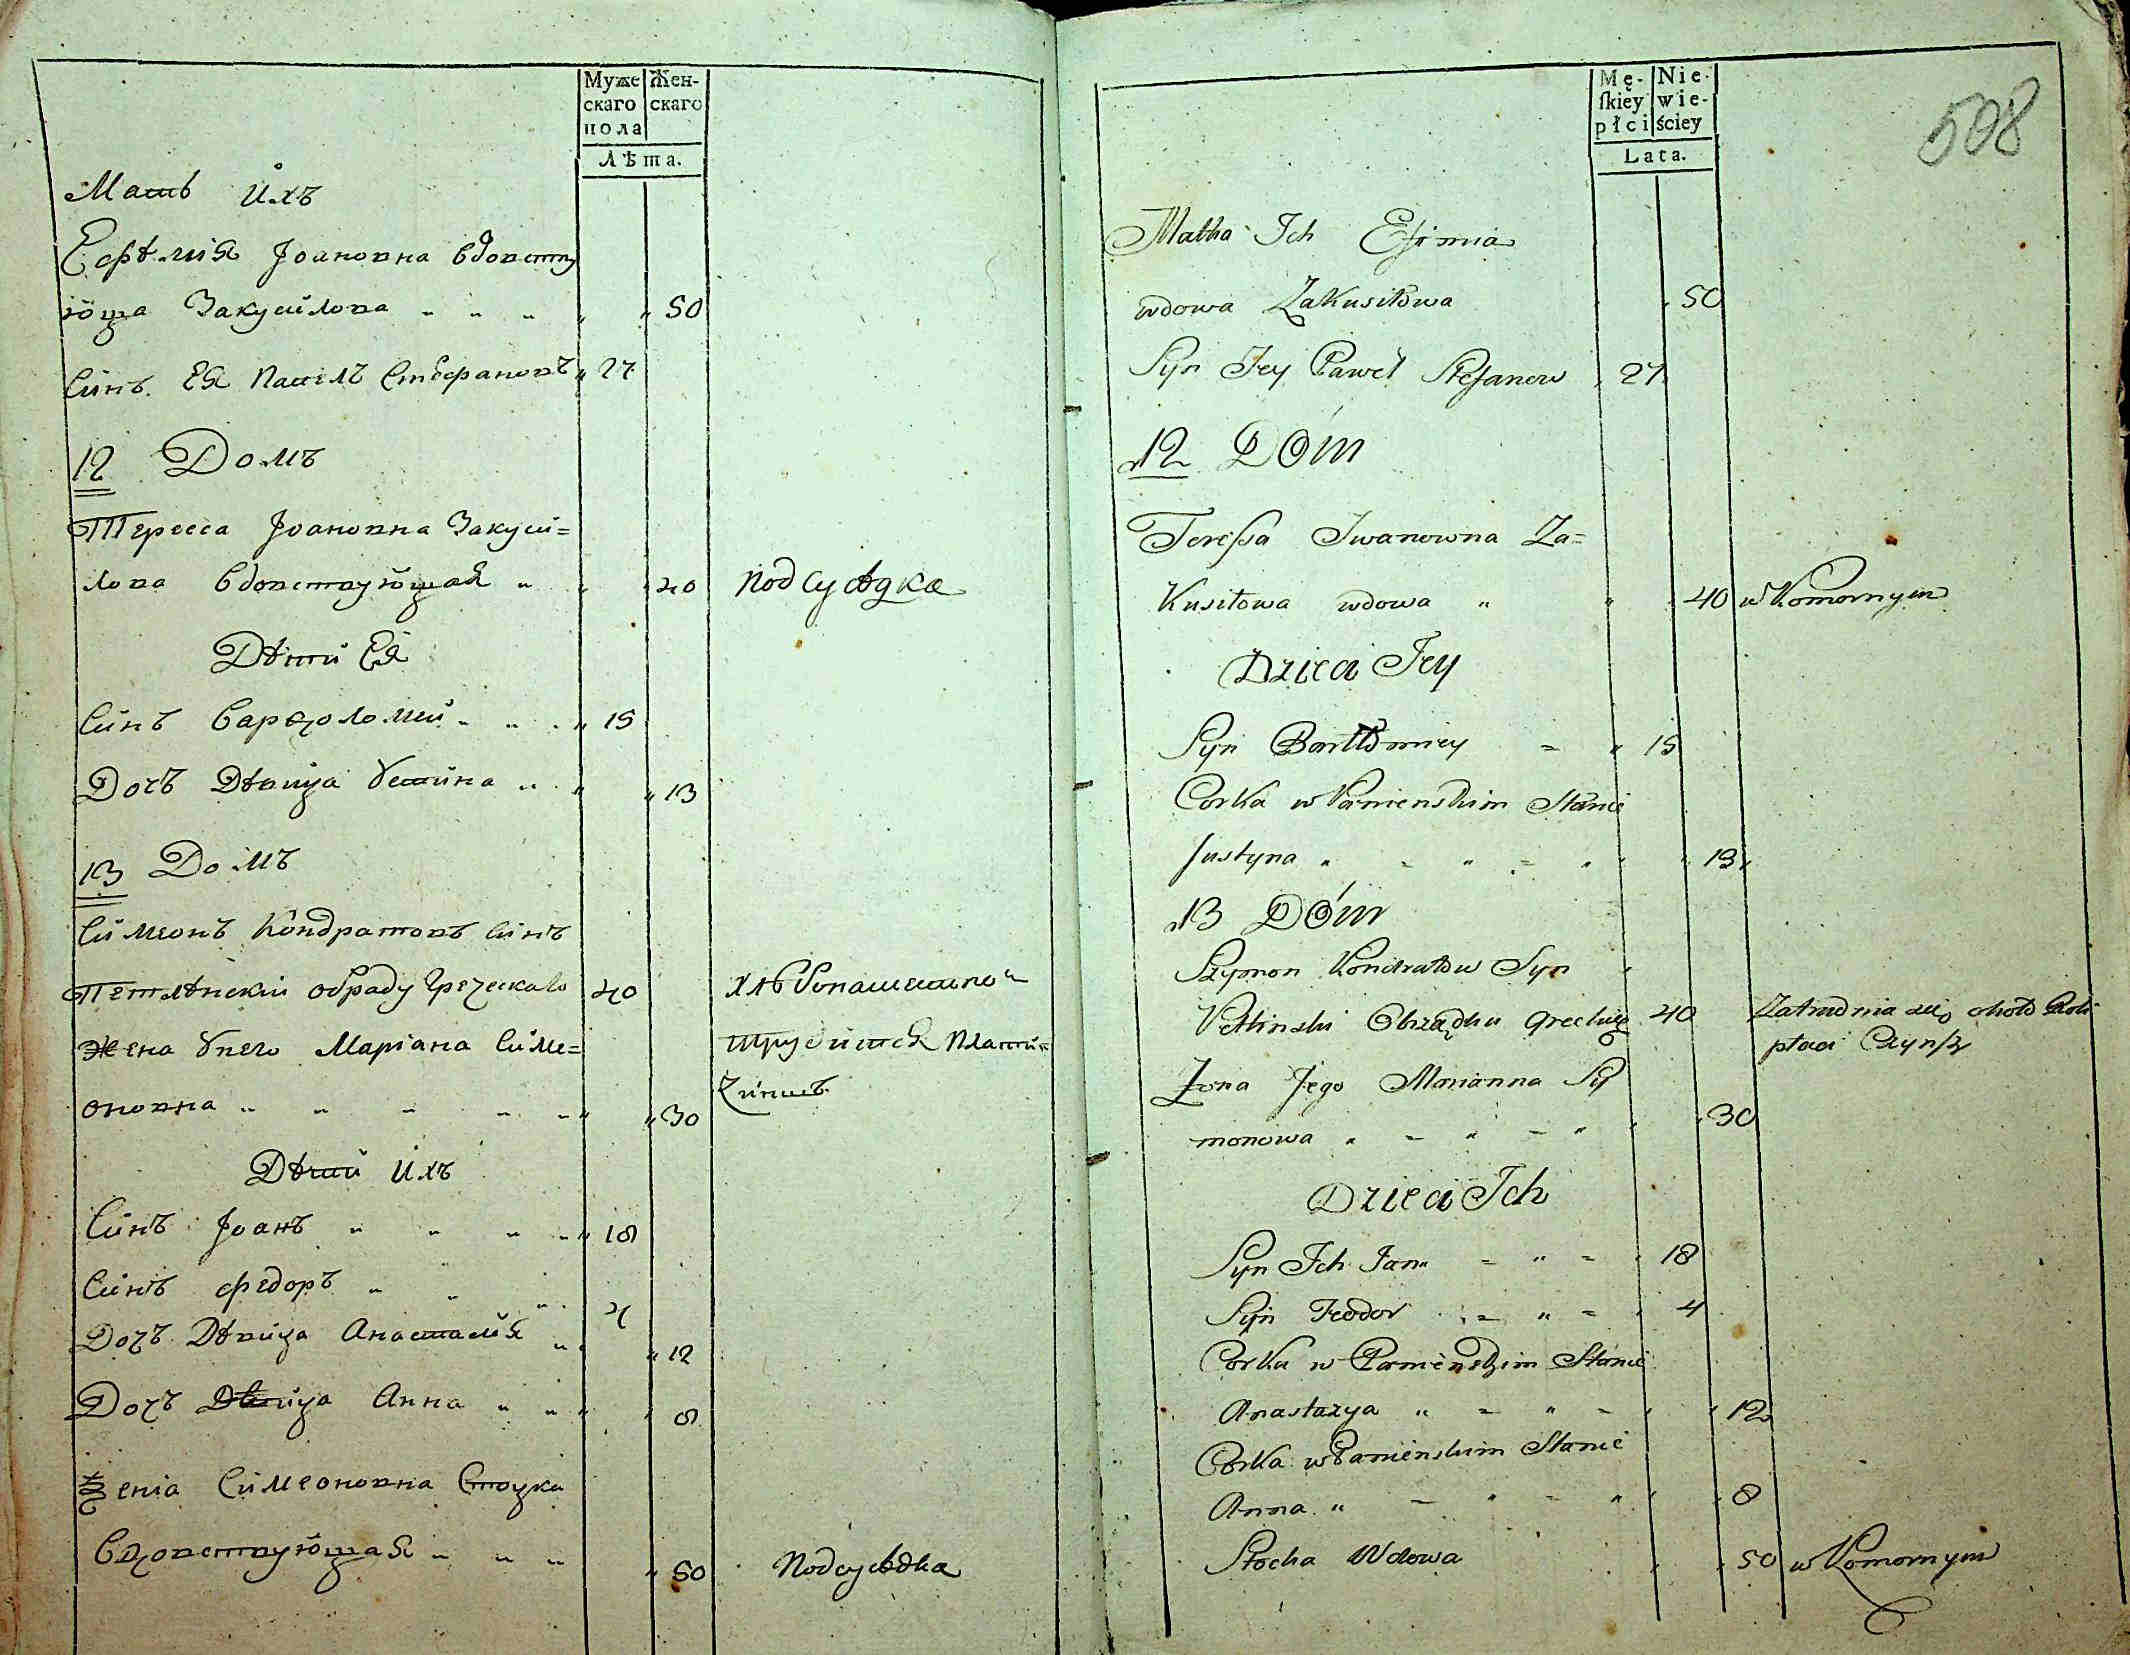 Муже
скаго
пола
Жен-
скаго
Лѣта.
Мать ихъ
Евфѣмія Іоановна вдовству
юща Закусилова 50
Синъ ЕЯ Павелъ Стефановъ 27
12 Домъ
Тереса Іоановна Закуси=
лова вдовствующая 40 подсусѣдка
Дѣти Ея
Синъ Варѳоломей 15
Дочъ Дѣвица Устина 13
13 Домъ
Симеонъ Кондратовъ синъ
обраду Греческаго 40 хлѣбопашествомъ
Жена у него Маріана Симе= трудится платитъ
оновна 30 чиншъ
Дѣти ихъ
Синъ Іоанъ 18
Синъ Федоръ 4
Дочъ Дѣвица Анастасія 12
Дочъ Дѣвица Анна 8
Ѯенія Симеоновна Стоцка
Вдовствующая 50 Подсусѣдка
Mę-
ſkiey
płci
Nie-
wie-
ściey
Lata.
508
Matka Ich Efimia
wdowa Zakusiłowa 50
Syn Jey Paweł Stefanow 27
12 Dóm
Teressa Iwanowna Za=
kusiłowa wdowa 40 w Komornym
Dzieci Jey
Syn Bartłomiey 15
Corka w Panienskim Stanie
Justyna 13
13 Dóm
Szymon Kondratow Syn
Obrządku Greckieg 40 Zatrudnia się około Roli
płaci Czynsz
Żona Jego Marianna Sy
monowa 30
Dzieci Ich
Syn Ich Jan 18
Syn Teodor 4
Corka w Panienskim Stanie
Anastazya 12
Corka w Panienskim Stanie
Anna 8
Stocka Wdowa 50 w Komornym